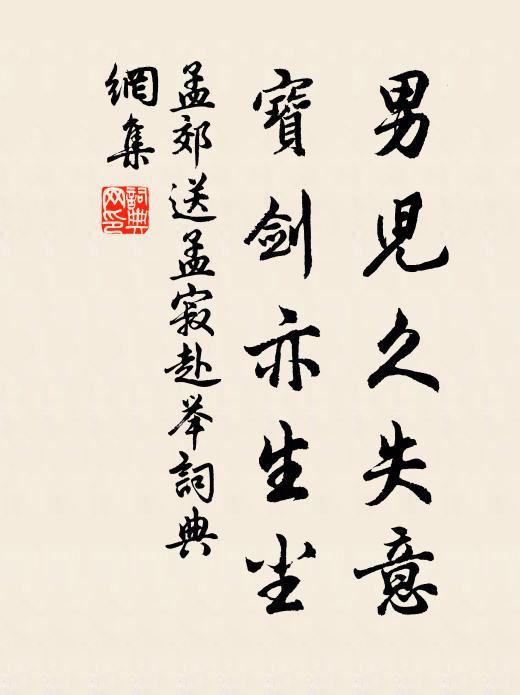 男児久失意
寶剑亦生尘
孟郊送孟寂赴举詞典
網集
詞典网印